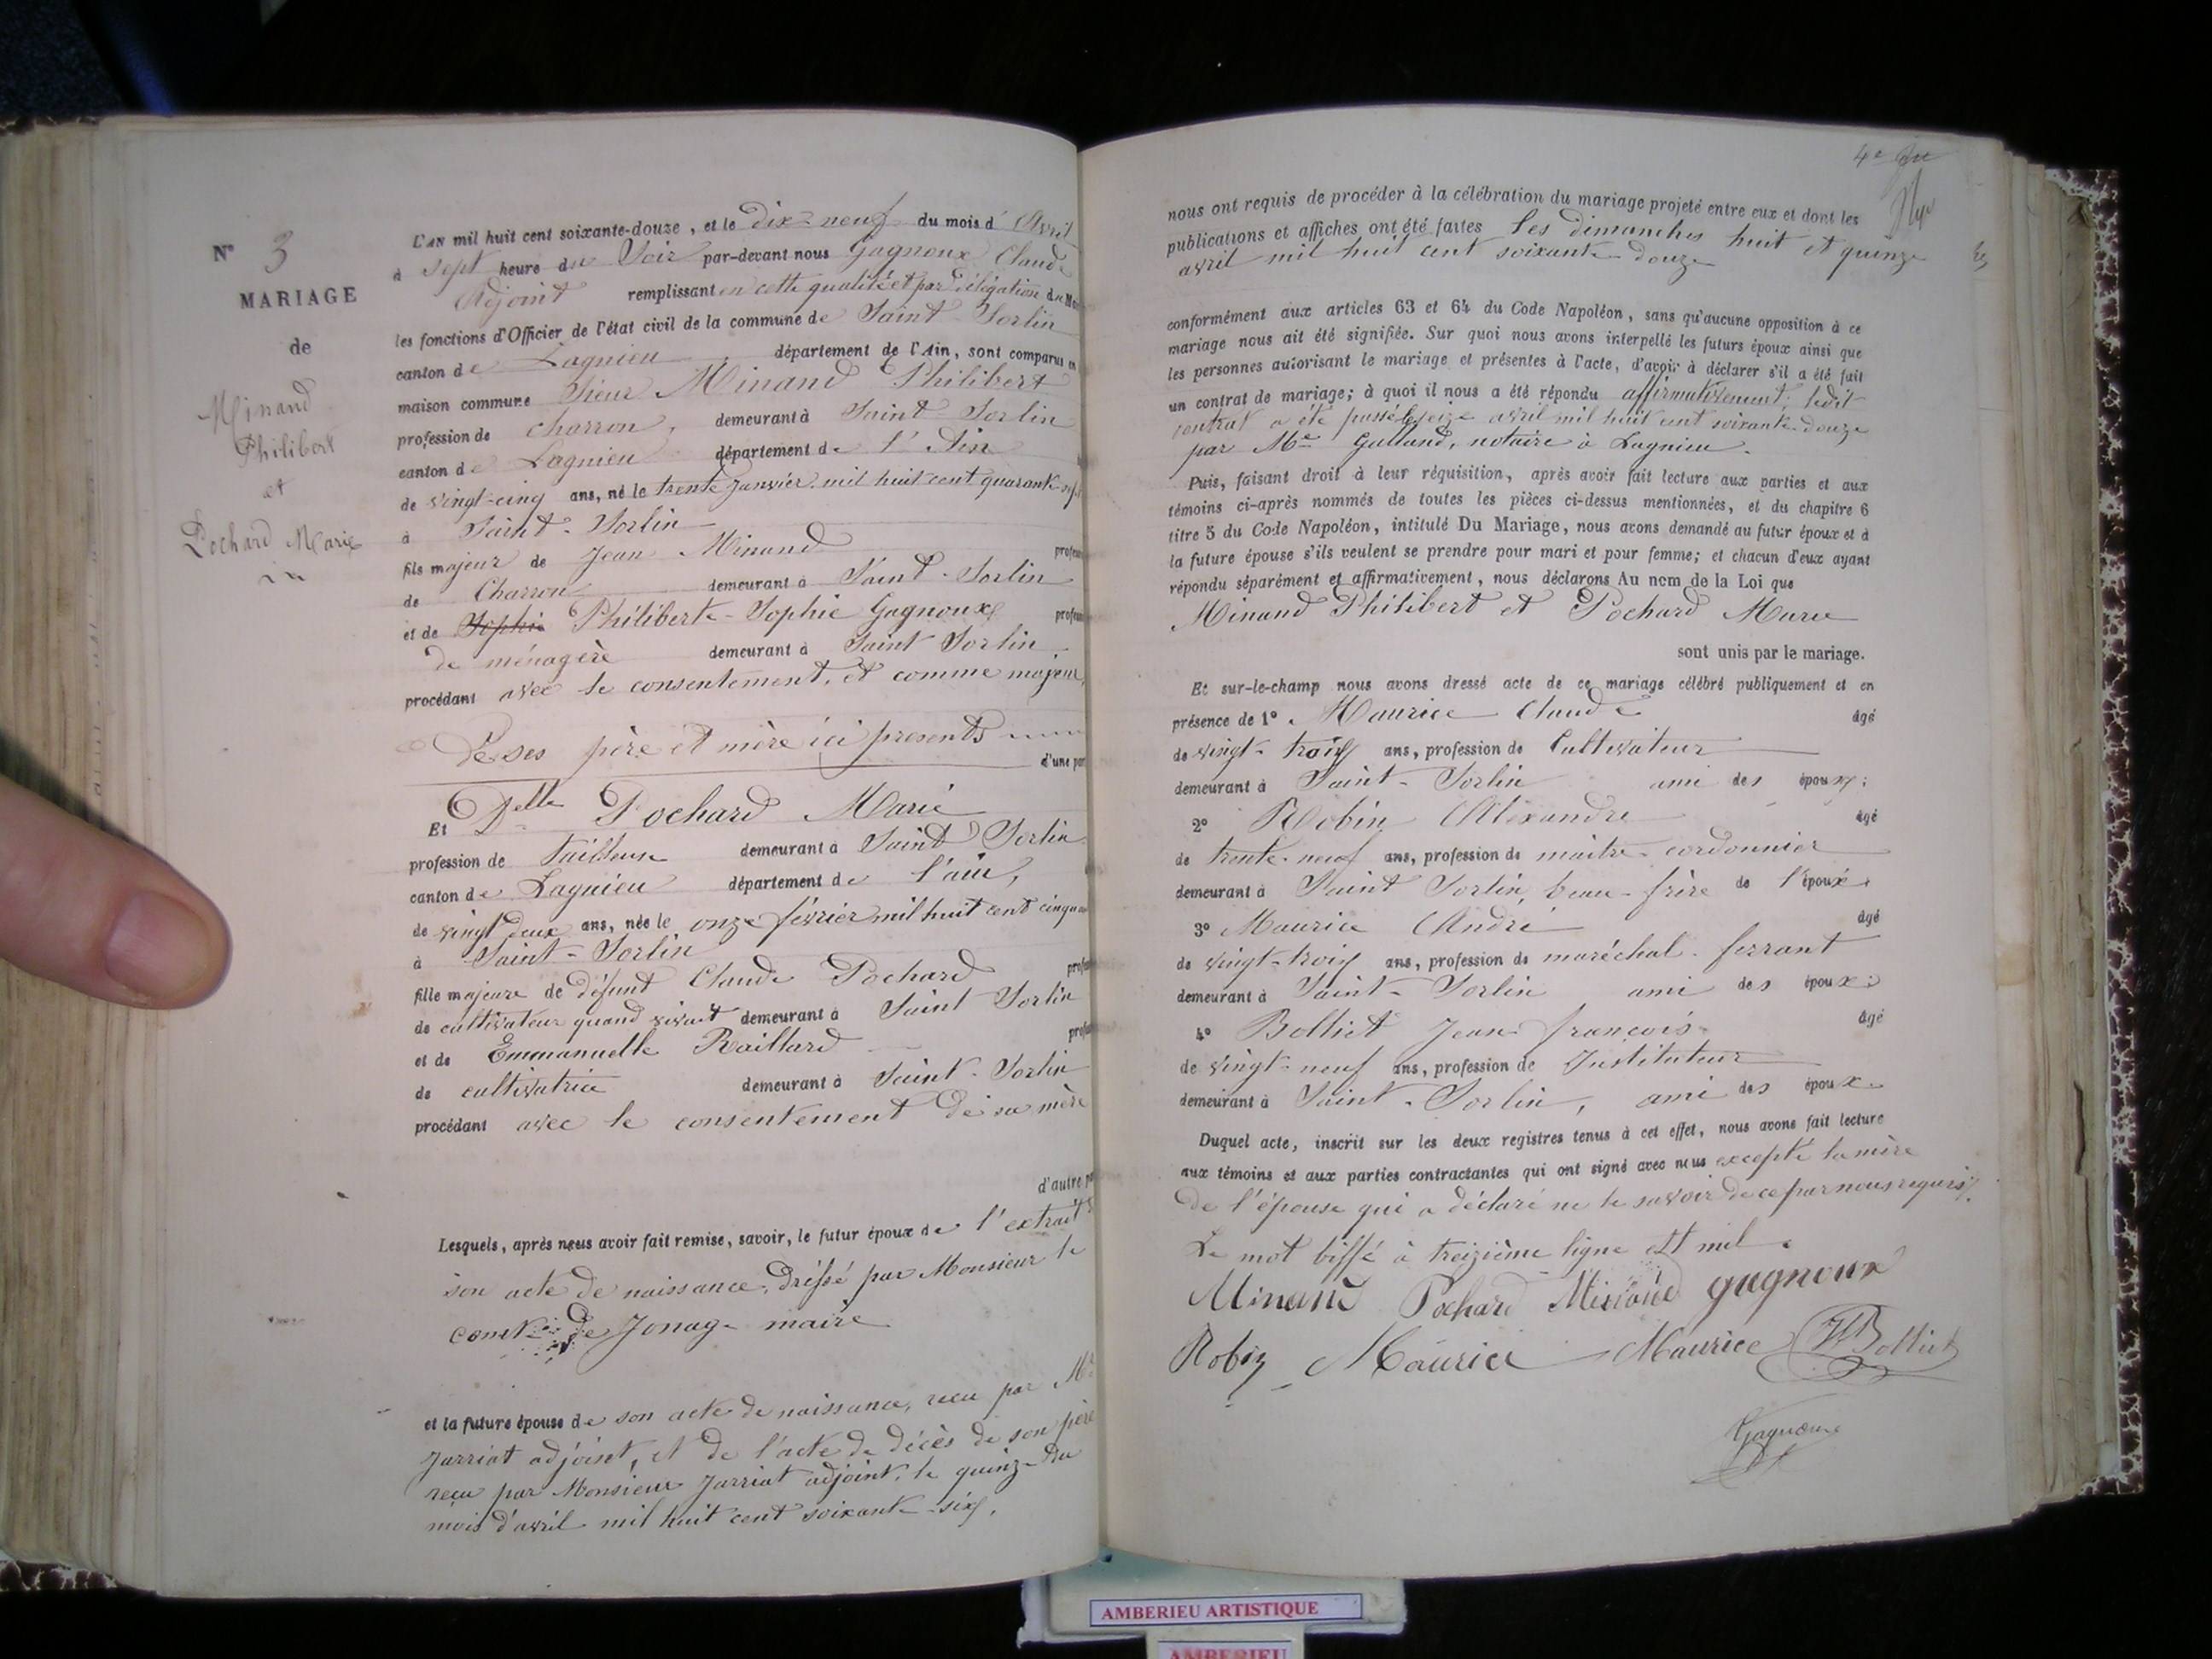 N° 3
MARIAGE
de
Minand
Philibert
et
Pochard Marie
L'AN mil huit cent soixante-douze, et le dix-neuf du mois d'Avril
à sept heure du Soir par-devant nous Gagnoux Claude
Adjoint remplissant en cette qualité et par délégation du
les fonctions d'Officier de l'état civil de la commune de Saint-Sorlin
canton de Lagnieu, département de l'Ain, sont comparus en
maison commune Sieur Minand Philibert
profession de charron, demeurant à Saint Sorlin
canton de Lagnieu département de l'Ain
de vingt-cinq ans, né le trente Janvier mil huit cent quarante-sept
à Saint-Sorlin
fils majeur de Jean Minand
de Charron demeurant à Saint-Sorlin
et de Sophie Philiberte-Sophie Gagnoux
de ménagère demeurant à Saint Sorlin
procédant avec le consentement, et comme majeur,
de ses père et mère ici présents
d'une
Et Delle Pochard Marie
profession de Tailleuse demeurant à Saint Sorlin
canton de Lagnieu département de l'ain,
de vingt deux ans, née le onze février mil huit cent
à Saint-Sorlin
fille majeure de défunt Claude Pochard
de cultivateur quand vivait demeurant à Saint Sorlin
et de Emmanuelle Raillard
de cultivatrice demeurant à Saint-Sorlin
procédant avec le consentement de sa mère
d'autre
Lesquels, après nous avoir fait remise, savoir, le futur époux de l'extrait
son acte de naissance, dressé par Monsieur le
comte de Jonage maire
et la future épouse de son acte de naissance, reçu par Mr
Jarriat adjoint, et de l'acte de décès de son père
reçu par Monsieur Jarriat adjoint, le quinze du
mois d'avril mil huit cent soixante-six.
nous ont requis de procéder à la célébration du mariage projeté entre eux et dont les
publications et affiches ont été faites les dimanches huit et quinze
avril mil huit cent soixante-douze
conformément aux articles 63 et 64 du Code Napoléon, sans qu'aucune opposition à ce
mariage nous ait été signifiée. Sur quoi nous avons interpellé les futurs époux ainsi que
les personnes autorisant le mariage et présentes à l'acte, d'avoir à déclarer s'il a été fait
un contrat de mariage; à quoi il nous a été répondu affirmativement, ledit
contrat a été passé le seize avril mil huit cent soixante-douze
par Me Galland, notaire à Lagnieu.
Puis, faisant droit à leur réquisition, après avoir fait lecture aux parties et aux
témoins ci-après nommés de toutes les pièces ci-dessus mentionnées, et du chapitre 6
titre 5 du Code Napoléon, intitulé Du Mariage, nous avons demandé au futur époux et à
la future épouse s'ils veulent se prendre pour mari et pour femme; et chacun d'eux ayant
répondu séparément et affirmativement, nous déclarons Au nom de la Loi que
Minand Philibert et Pochard Marie
sont unis par le mariage.
Et sur-le-champ nous avons dressé acte de ce mariage célébré publiquement et en
présence de 1° Maurice Claude âgé
de vingt-trois ans, profession de Cultivateur
demeurant à Saint-Sorlin ami des époux;
2° Robin Alexandre âgé
de trente-neuf ans, profession de maître-cordonnier
demeurant à Saint Sorlin, beau-frère de l'époux.
3° Maurice André âgé
de vingt-trois ans, profession de maréchal-ferrant
demeurant à Saint-Sorlin ami des époux.
4° Bolliet Jean-françois âgé
de vingt-neuf ans, profession de Instituteur
demeurant à Saint-Sorlin, ami des époux.
Duquel acte, inscrit sur les deux registres tenus à cet effet, nous avons fait lecture
aux témoins et aux parties contractantes qui ont signé avec nous excepté la mère
de l'épouse qui a déclaré ne le savoir de ce par nous requis.
Le mot biffé à treizième ligne est nul.
Minand Pochard Minand gagnoux
Robin Maurice Maurice Bolliet
Gagnoux
AMBERIEU ARTISTIQUE
AMBERIEU